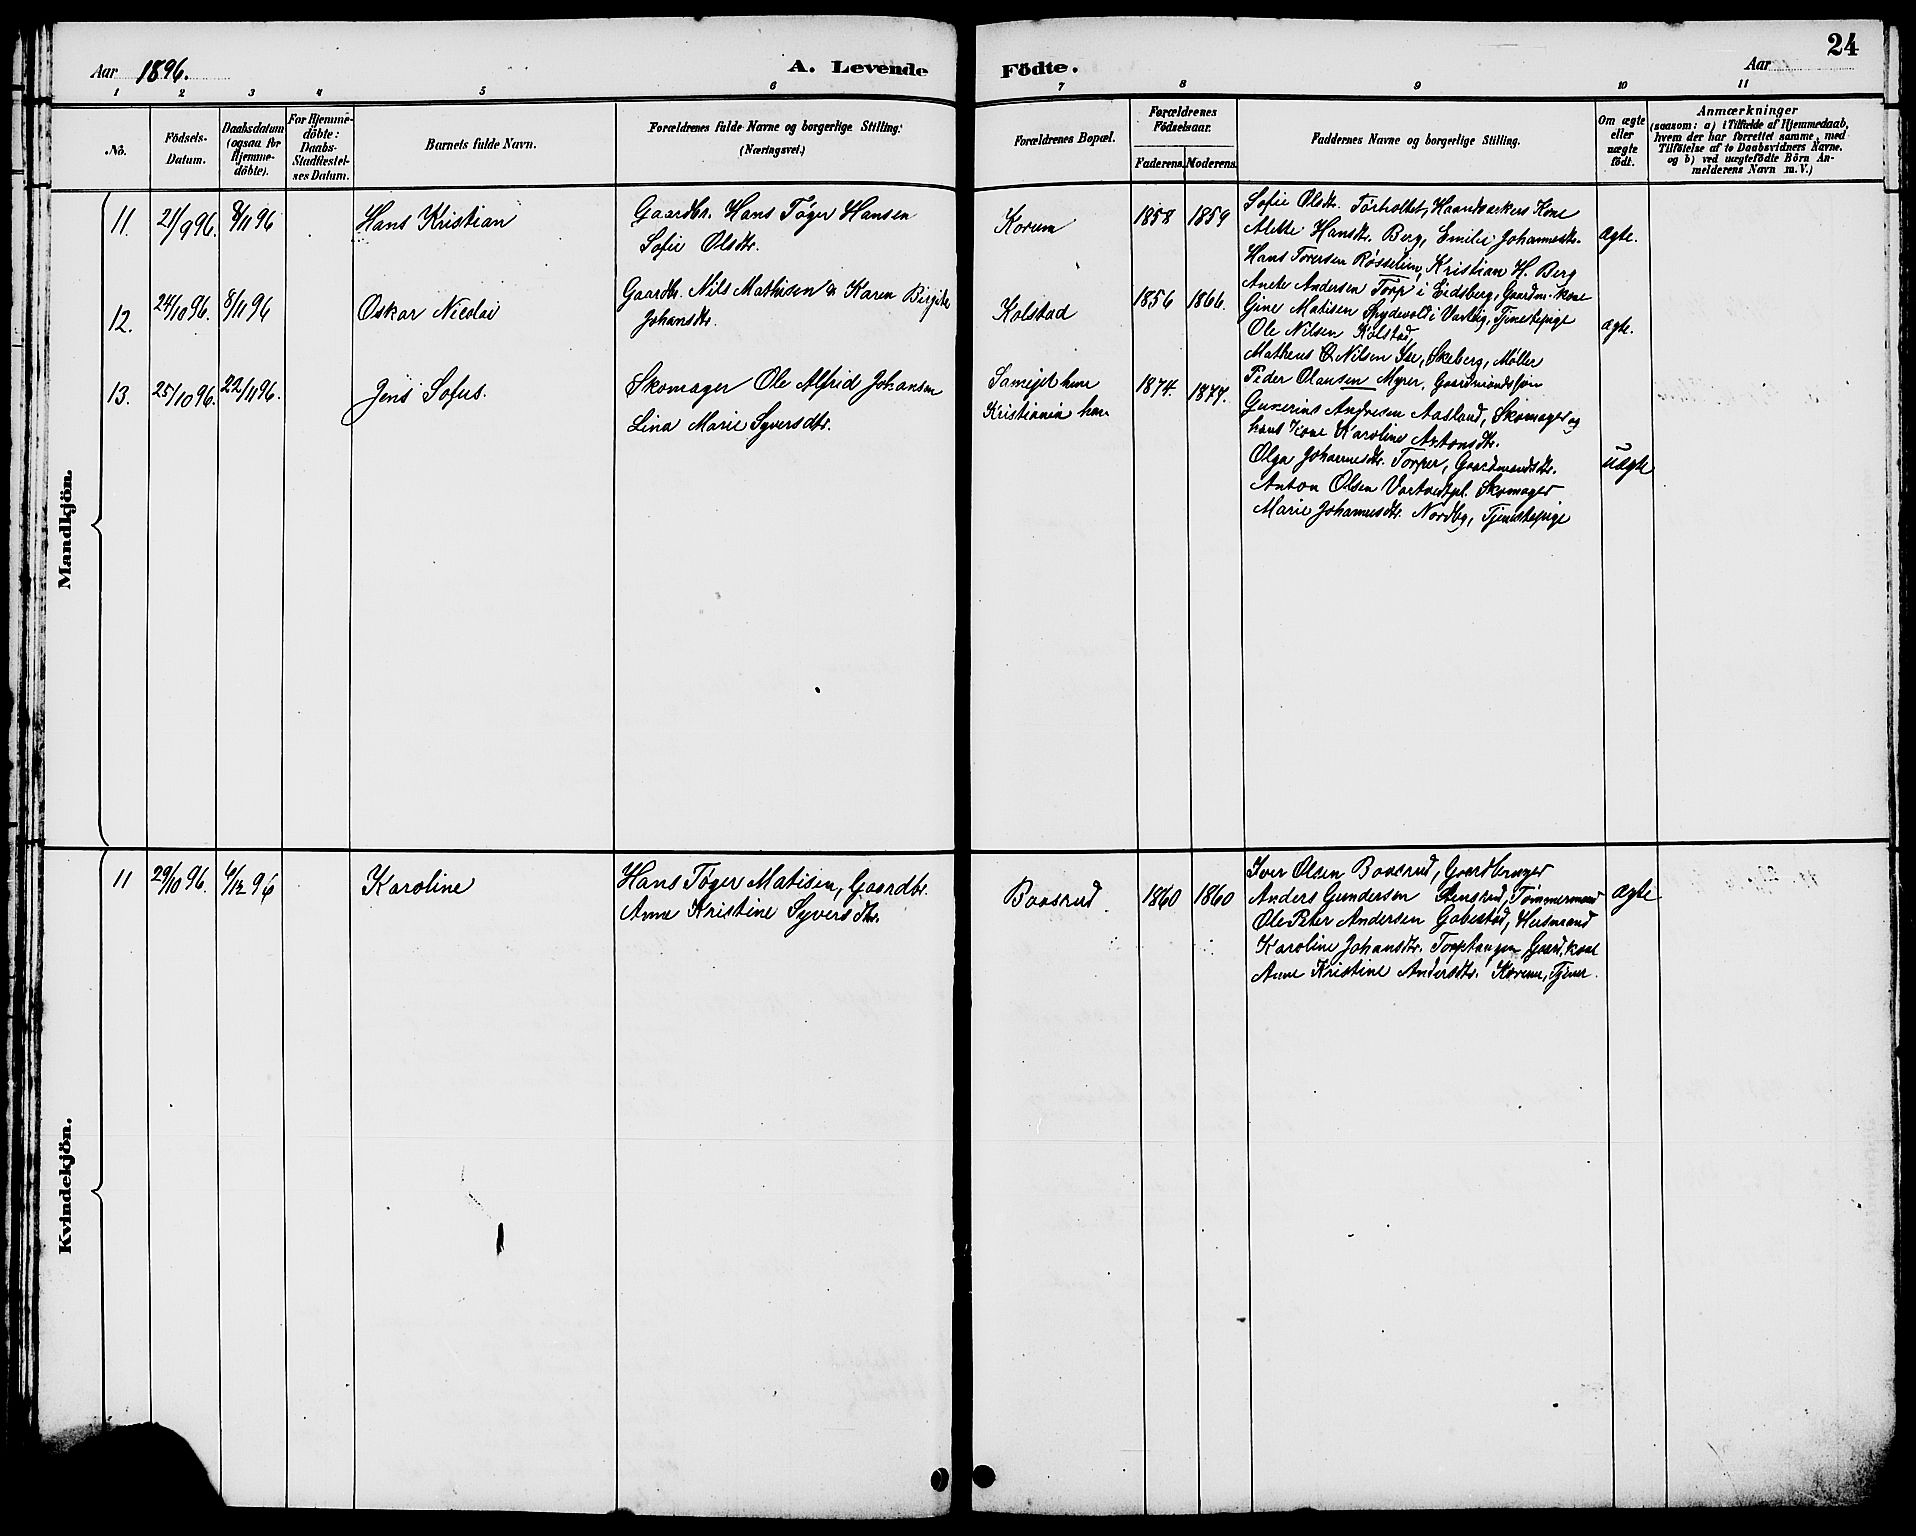 24
Aar 1896.
A. Levende Födte.
Aar
1 2 3 4 5 6 7 8 9 10 11
No.
Födsels-
Datum.
Daabsdatum
(ogsaa for
Hjemme-
döbte).
For Hjemme-
döbte:
Daabs-
Stadfæstel-
ses Datum.
Barnets fulde Navn.
Forældrenes fulde Navne og borgerlige Stilling.
(Næringsvei.)
Forældrenes Bopæl.
Forældrenes
Födselsaar.
Faderens. Moderens.
Faddernes Navne og borgerlige Stilling.
Om ægte
eller
uægte
födt.
Anmærkninger
(saasom: a) i Tilfælde af Hjemmedaab,
hvem der har forrettet samme, med
Tilföielse af to Daabsvidners Navne.
og b) ved uægtefödte Börn An-
melderens Navn m. V.)
Mandkjön.
11. 21/9 96. 8/11 96 Hans Kristian
Gaardbr. Hans Tøger Hansen
Sofie Olsdtr.
Korum 1858 1859
Sofie Olsdtr. Tørholtet, Haandværkers Kone
Alette Hansdtr. Berg, Emilie Johannesdtr.
Hans Torersen Røsselien, Kristian H. Berg
ægte.
12. 24/10 96. 8/11 96 Oskar Nicolai
Gaardbr. Nils Mathisen & Karen Birgite
Johansdtr.
Kolstad 1856 1866.
Anete Andersen Torp i Eidsberg, Gaardm. kone
Gine Matisen Spydevold i Varteig, Tjenestepige
Ole Nilsen Kolstad,
Matheus Nilsen Ise, Skeberg, Møller
ægte.
13. 25/10 96. 22/11 96. Jens Sofus.
Skomager Ole Alfred Johansen
Lina Marie Syversdtr.
Kristiania 1874. 1877.
Peder Olausen Myrer, Gaardmandssøn
Gunerius Andresen Aasland, Skomager og
hans Kone Karoline Antonsdtr.
Olga Johannesdtr. Torper, Gaardmandsdtr.
Anton Olsen Skomager
Marie Johannesdtr. Nordby, Tjenestepige
uægte
Kvindekjön.
11 29/10 96. 6/12 96 Karoline
Hans Tøger Matisen, Gaardbr.
Anne Kristine Syversdtr.
Baasrud 1860 1860
Iver Olsen Baasrud, Gaardbruger
Anders Gundersen Stensrud, Tømmermand
Ole Peter Andersen Gabestad, Husmand
Karoline Johansdtr. Torptangen, Gaard.kone
Anne Kristine Andersdtr. Korum, Tjener.
ægte